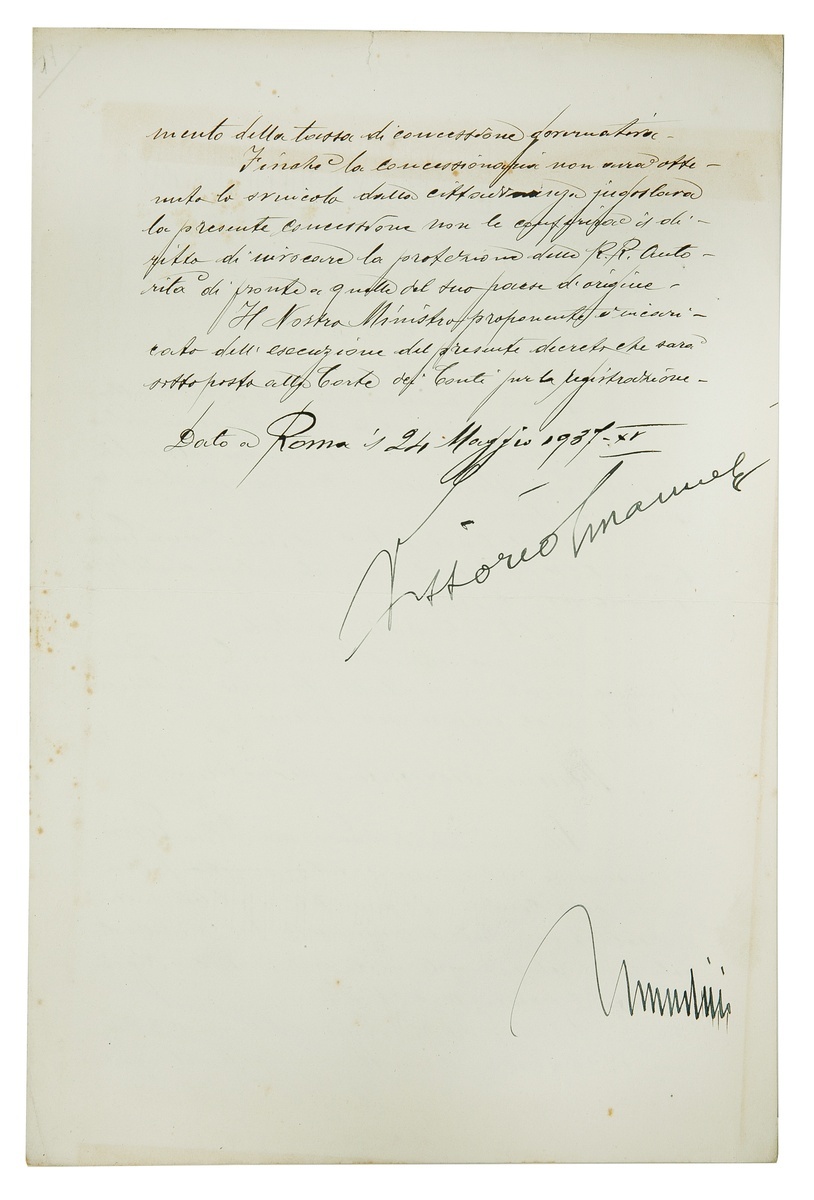 mento della tassa di concessione governativa -
Finché la concessionaria non avrà otte -
nuto lo svincolo dalla cittadinanza jugoslava
la presente concessione non le conferisce il di -
ritto di invocare la protezione delle R.R. Auto -
rità di fronte a quelle del suo paese d'origine -
Il Nostro Ministro proponente è incari -
cato dell'esecuzione del presente decreto che sarà
sottoposto alla Corte dei Conti per la registrazione -
Dato a Roma il 24 Maggio 1937 - XV
Vittorio Emanuele
Mussolini